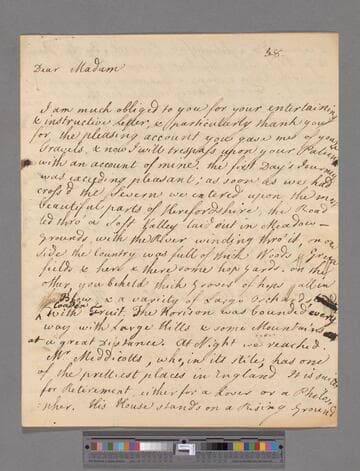 38
Dear Madam
I am much obliged to you for your entertaining
& instructive letter, & particularly thank you
for the pleasing account you gave me of your
Travels, & now I will tresspass upon your Patience
with an account of mine: the first Day's Journey
was exceeding pleasant; as soon as we had
cross'd the Severn we entered upon the most
beautiful parts of Herefordshire, the Road
led thro' a soft Valley laid out in Meadow
Grounds with the River winding thro' it, on one
side the Country was full of thick Woods, Green
fields & here & there some hop yards. on the
other, you beheld thick Groves of hops all in
Blow, & a variety of Large Orchards
loaden with Fruit. The Horison was bounded every
way with Large Hills & some Mountains
at a great Distance. At Night we reached
Mr Meddicotts, who, in its stile, has one
of the prettiest places in England. It is
for Retirement either for a Lover or a Philoso-
pher. His House stands on a Rising Ground